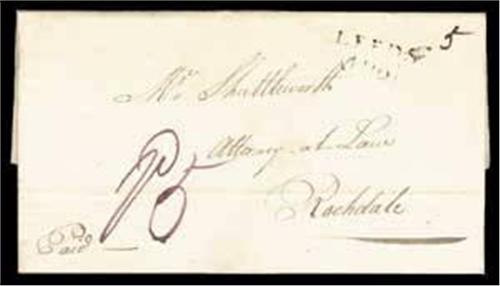 LEEDS 5
Mr Shuttleworth
Attorney at Law
P5
Rochdale
Paid